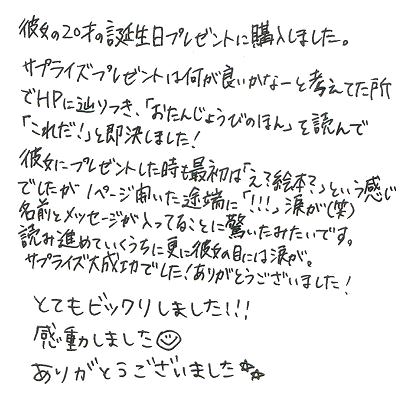 彼女の20才の誕生日プレゼントに購入しました。
サプライズプレゼントは何が良いかなーと考えてた所
でHPに辿りつき、「おたんじょうびのほん」を読んで
「これだ!」と即決しました!
彼女にプレゼントした時も最初は「え?絵本?」という感じ
でしたが1ページ開いた途端に「!!!」涙が(笑)
名前とメッセージが入ってることに驚いたみたいです。
読み進めていくうちに更に彼女の目には涙が。
サプライズ大成功でした!ありがとうございました!
とてもビックリしました!!!
感動しました☺
ありがとうございました☆☆